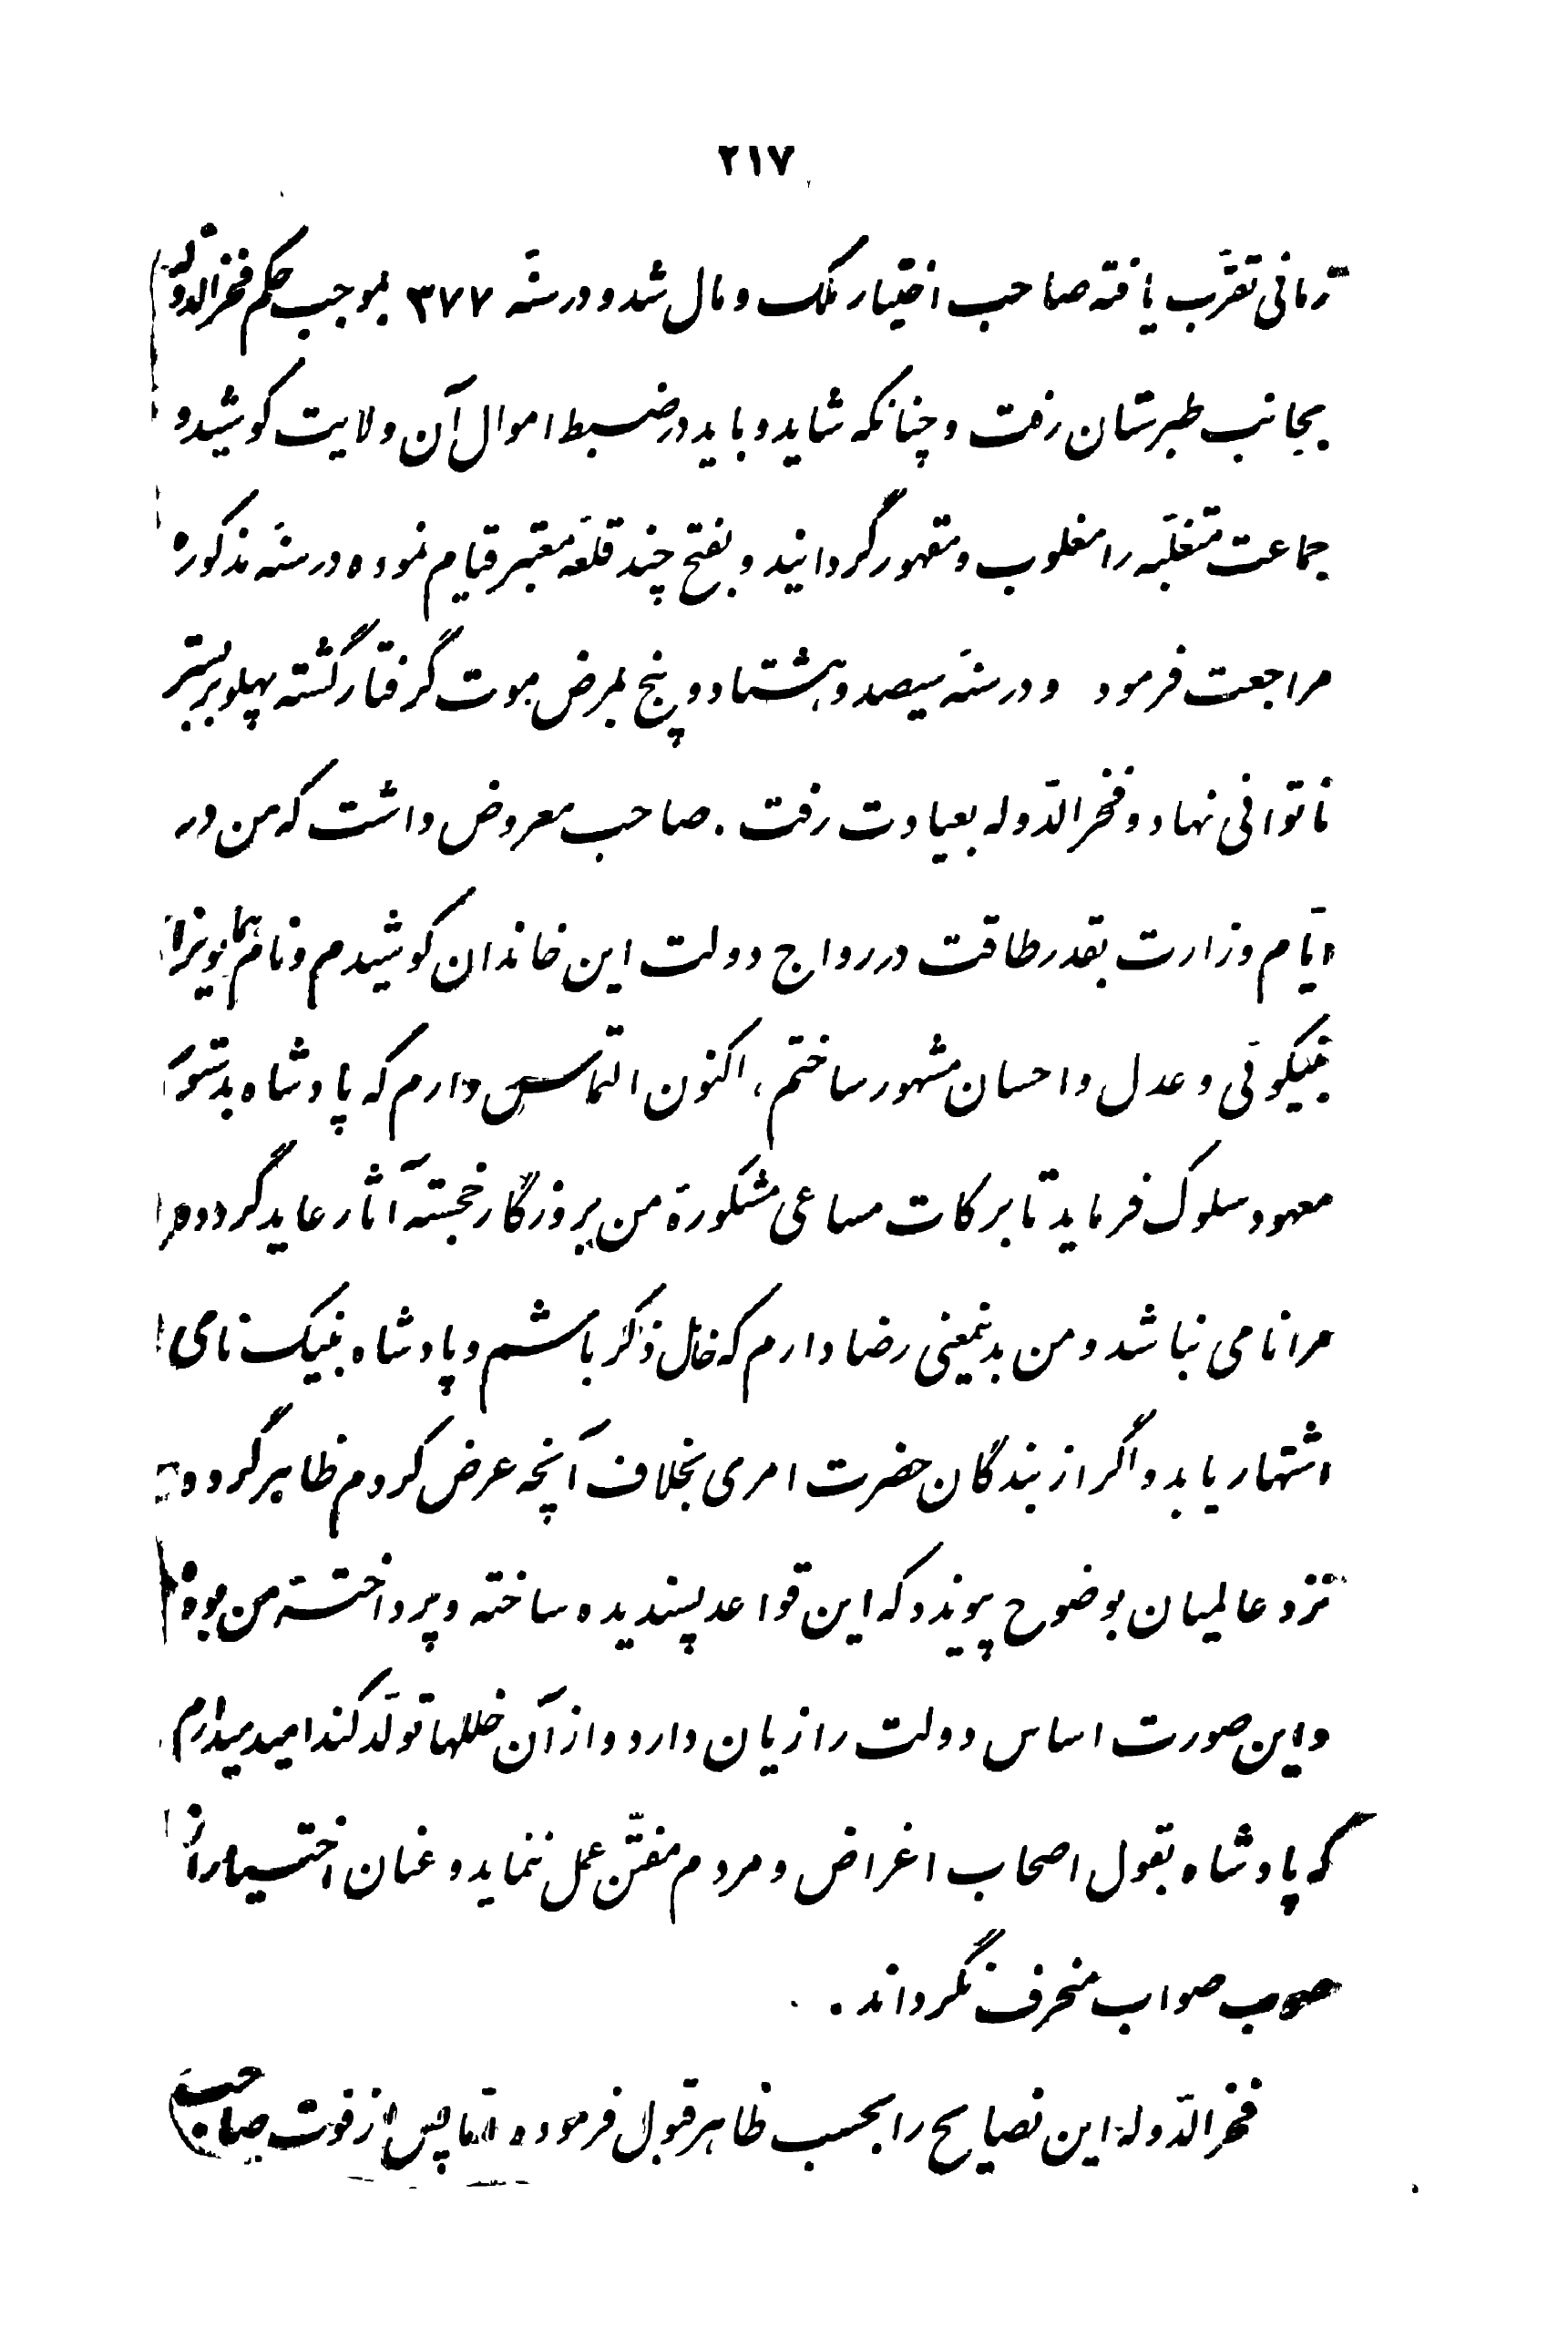 ۲۱۷
زمانی تقرّب یافته صاحب اختیار ملک و مال شد و در سنهٔ ۳۷۷ بموجب حکم فخرالدوله
بجانب طبرستان رفت و چنانکه شاید و باید در ضبط اموال آن ولایت کوشید و
جماعت متغلّبه را مغلوب و مقهور گردانید و بفتح چند قلعهٔ معتبر قیام نموده در سنهٔ مذکوره
مراجعت فرمود و در سنهٔ سیصد و هشتاد و پنج بمرض موت گرفتار گشته پهلو بر بستر
ناتوانی نهاد و فخرالدّوله بعیادت رفت . صاحب معروض داشت که من در
ایّام وزارت بقدر طاقت در رواج دولت این خاندان کوشیدم و نام همایونرا
بنیکوئی و عدل و احسان مشهور ساختم ، اکنون التماس دارم که پادشاه بدستور
معهود سلوک فرماید تا برکات مساعی مشکورهٔ من بروزگار خجسته آثار عاید گردد و
مرا نامی نباشد و من بدینمعنی رضا دارم که خامل ذکر باشم و پادشاه بنیک نامی
اشتهار یابد و اگر از بندگان حضرت امری بخلاف آنچه عرض کردم ظاهر گردد
نزد عالمیان بوضوح پیوندد که این قواعد پسندیده ساخته و پرداختهٔ من بوده
و این صورت اساس دولت را زیان دارد و از آن خللها تولّد کند امید میدارم
که پادشاه بقول اصحاب اغراض و مردم مفتّن عمل ننماید و عنان اختیار از
صوب صواب منحرف نگرداند .
فخرالدّوله این نصایح را بحسب ظاهر قبول فرموده امّا پس از فوت صاحب